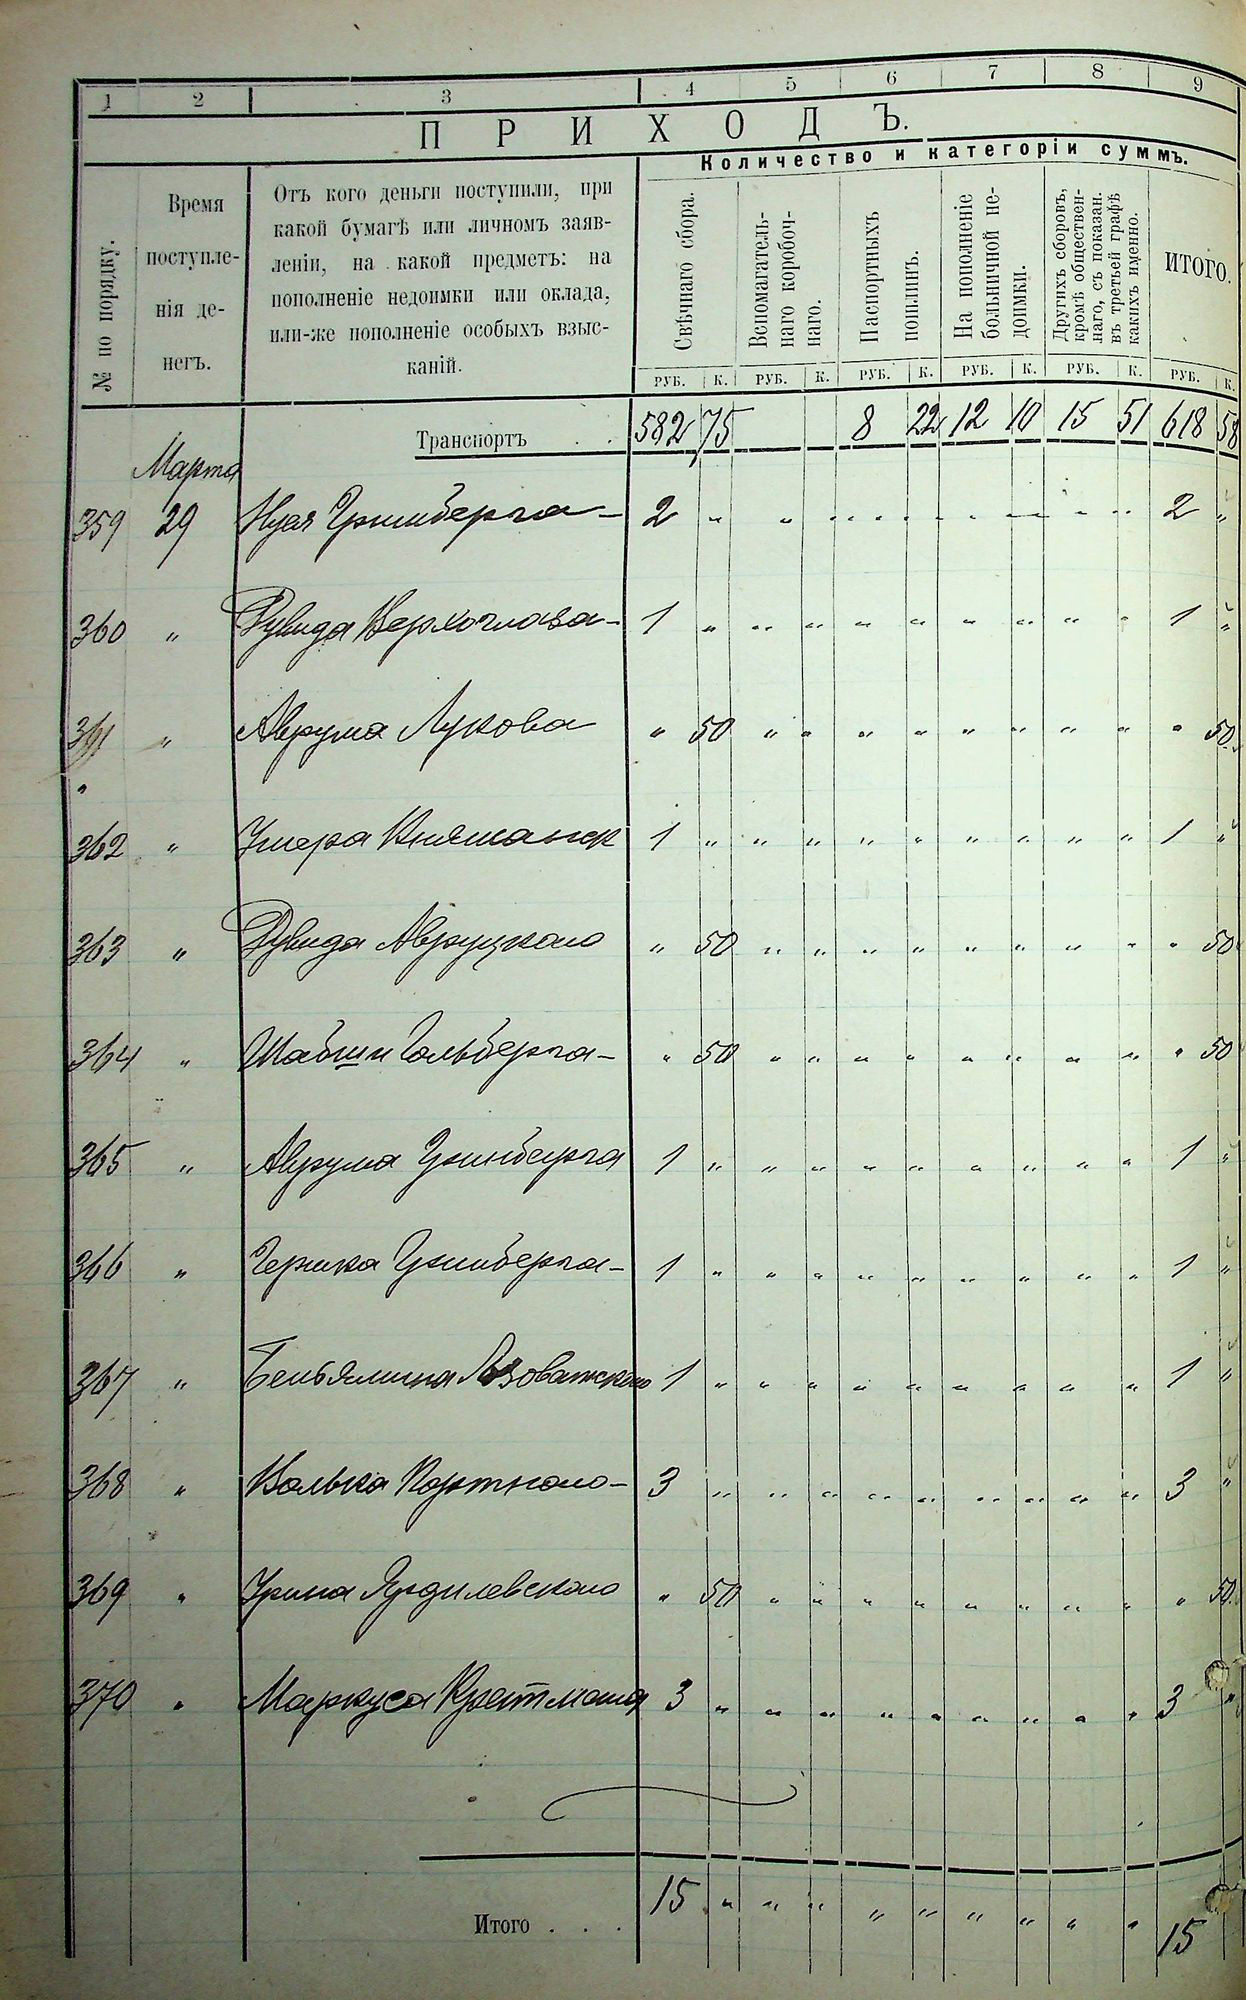 1 2 3 4 5 6 7 8 9
ПРИХОДЪ.
Количество и категоріи суммъ.
№ по порядку.
Время
поступле-
нія де-
негъ.
Отъ кого деньги поступили, при
какой бумагѣ или личномъ заяв-
леніи, на какой предметъ: на
пополненіе недоимки или оклада,
или-же пополненіе особыхъ взыс-
каній.
Свѣчнаго сбора.
Вспомагатель-
наго коробоч-
наго.
Паспортныхъ
пошлинъ.
На пополненіе
больничной не-
доимки.
Другихъ сборовъ,
кромѣ обществен-
наго, съ показан.
въ третьей графѣ
какихъ именно.
ИТОГО.
РУБ. К. РУБ. К. РУБ. К. РУБ. К. РУБ. К. РУБ. К.
Транспортъ . . 582 75 8 22 12 10 15 51 618 58
Марта
359 29 Гринберга 2 „ „ „ „ „ „ „ „ „ 2 „
360 „ Дувида Верхоглаза 1 „ „ „ „ „ „ „ „ „ 1 „
361 „ Аврума Лукова „ 50 „ „ „ „ „ „ „ „ „ 50
362 „ 1 „ „ „ „ „ „ „ „ „ 1 „
363 „ Дувида Авруцкого „ 50 „ „ „ „ „ „ „ „ „ 50
364 „ Шабши Гольберга „ 50 „ „ „ „ „ „ „ „ „ 50
365 „ Аврума Гринберга 1 „ „ „ „ „ „ „ „ „ 1 „
366 „ Гершка Гринберга 1 „ „ „ „ „ „ „ „ „ 1 „
367 „ Беньямина 1 „ „ „ „ „ „ „ „ „ 1 „
368 „ Волька Портного 3 „ „ „ „ „ „ „ „ „ 3 „
369 „ „ 50 „ „ „ „ „ „ „ „ „ 50
370 „ Маркуса Крейтмана 3 „ „ „ „ „ „ „ „ „ 3 „
Итого . . . 15 „ „ „ „ „ „ „ „ „ 15